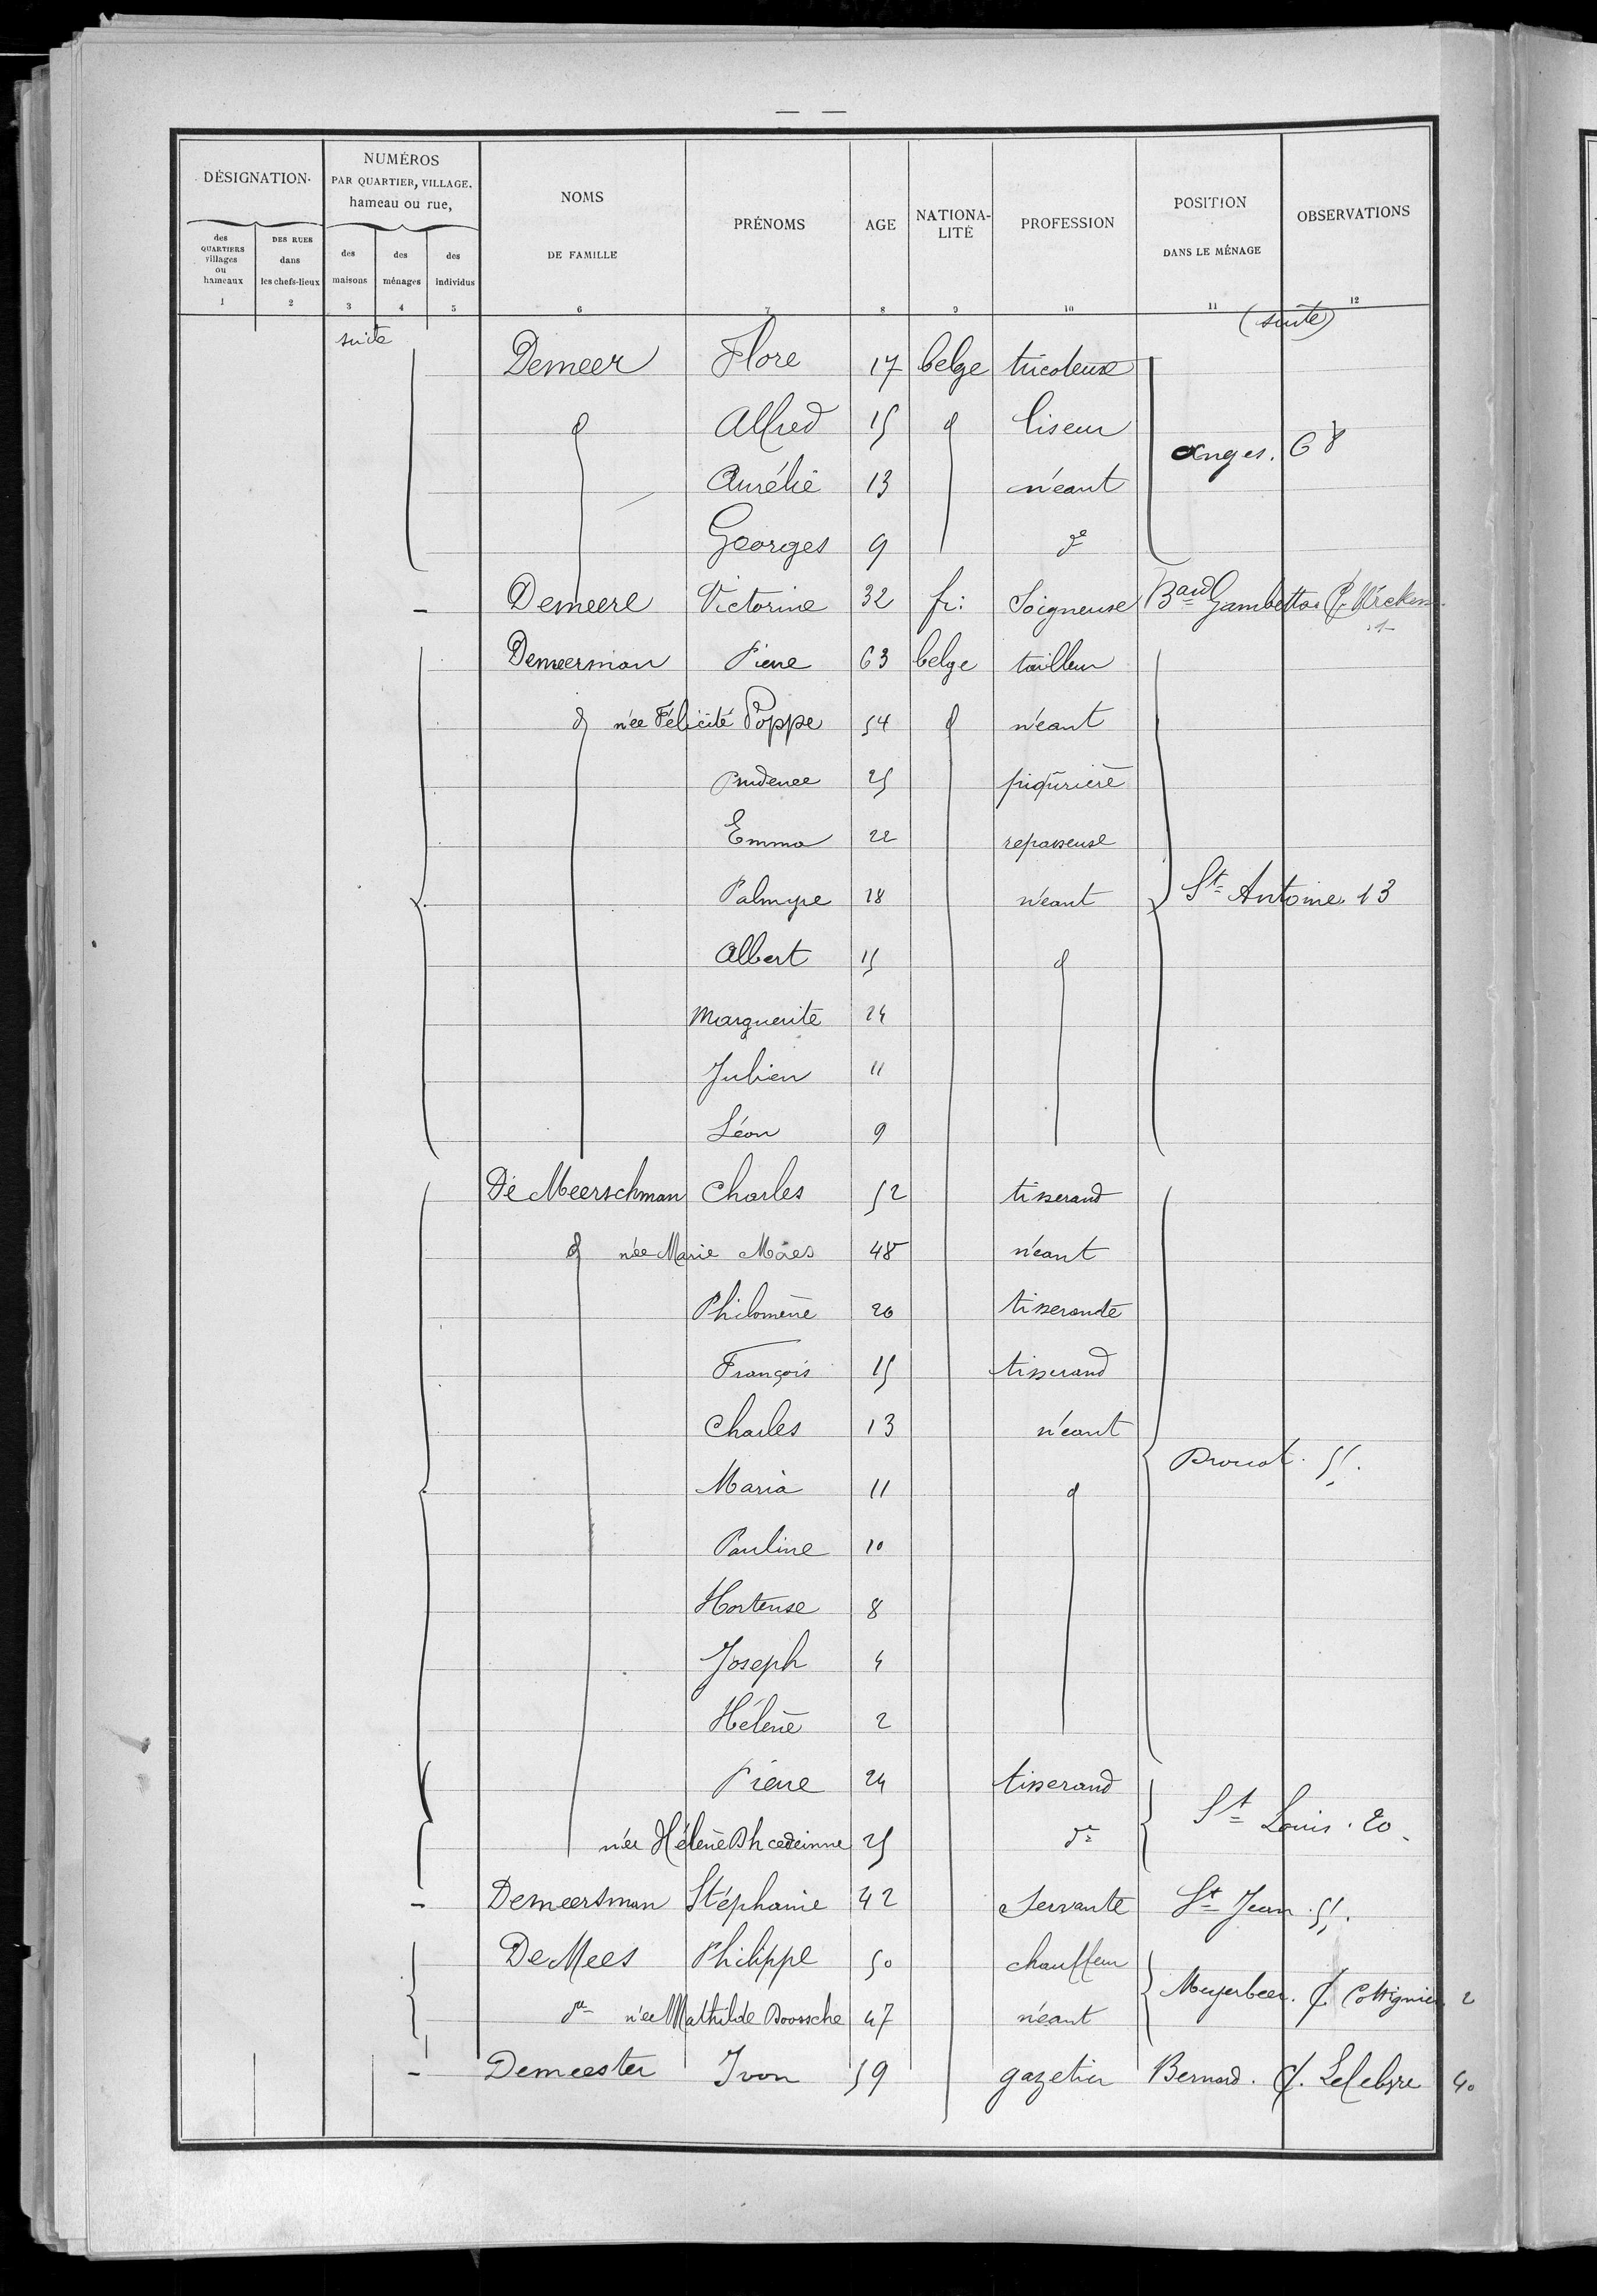 DÉSIGNATION.
NUMÉROS PAR QUARTIER, VILLAGE. hameau ou rue,
NOMS DE FAMILLE
PRÉNOMS
AGE
NATIONA-LITÉ
PROFESSION
POSITION DANS LE MÉNAGE
OBSERVATIONS
des QUARTIERS villages ou hameaux
DES RUES dans les chefs-lieux
des maisons
des ménages
des individus
1 2 3 4 5 6 7 8 9 10 11 12
suite (suite)
Demeer Flore 17 belge tricoteuse
d Alfred 15 d liseur
anges. 68
Aurélie 13 néant
Georges 9 d°
- Demeere Victorine 32 fr: Soigneuse Gambetta
Demeerman Pierre 63 belge tailleur
d née Félicité Poppe 54 d néant
Prudence 25 piqûrière
Emma 22 repasseuse
Palmyre 18 néant St Antoine 13
Albert 15 d
Marguerite 24
Julien 11
Léon 9
De Meerschman Charles 52 tisserand
d née Marie Maes 48 néant
Philomène 20 tisserande
François 15 tisserand
Charles 13 néant
Maria 11 d
Pauline 10
Hortense 8
Joseph 4
Hélène 2
Pierre 24 tisserand
St Louis. 20
née Hélène 25 d°
- Demeersman Stéphanie 42 Servante St Jean 51.
De Mees Philippe 50 chauffeur
Meyerbeer. C. Cottignies 2
d° née Mathilde 47 néant
- Demeester Ivon 59 gazetier Bernard. C. Lefebvre 40